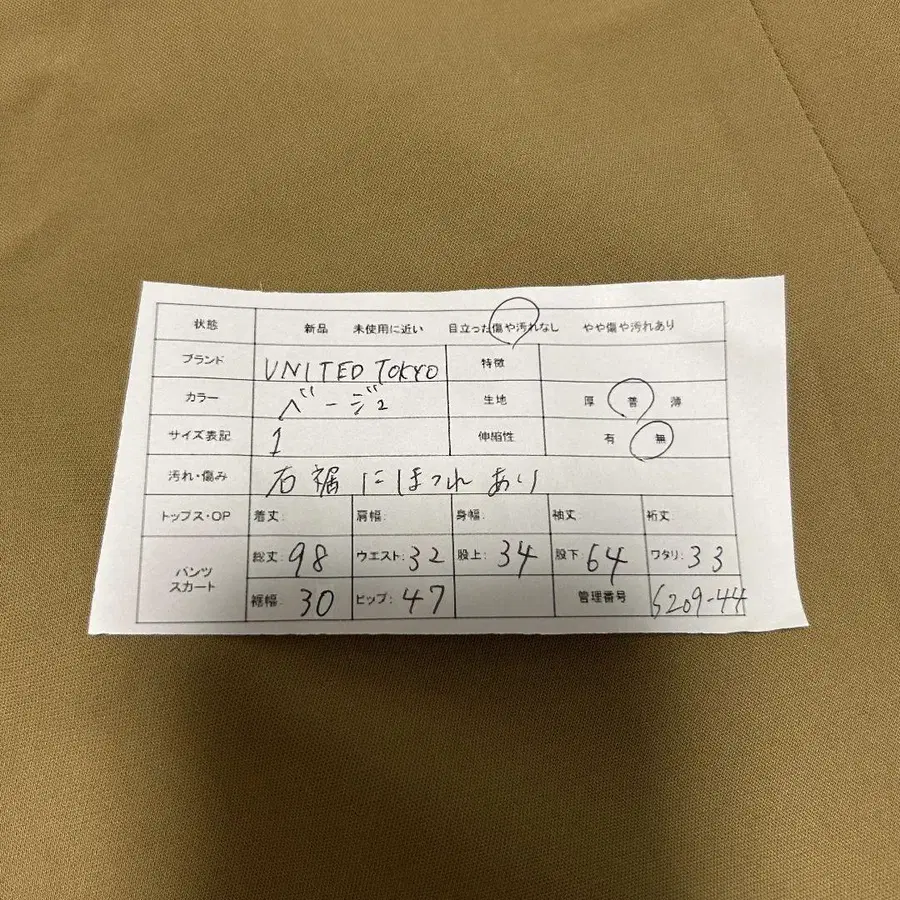 状態 新品 未使用に近い 目立った傷や汚れなし やや傷や汚れあり
ブランド UNITED TOKYO 特徴
カラー ベージュ 生地 厚 普 薄
サイズ表記 1 伸縮性 有 無
汚れ・傷み 右裾にほつれあり
トップス・OP 着丈: 肩幅: 身幅: 袖丈: 裄丈:
パンツ スカート 総丈: 98 ウエスト: 32 股上: 34 股下: 64 ワタリ: 33
裾幅: 30 ヒップ: 47 管理番号 S209-44